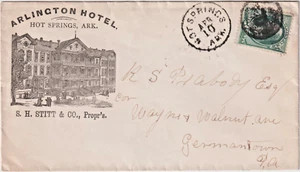 ARLINGTON HOTEL,
HOT SPRINGS, ARK.
HOT SPRINGS
10
ARK.
S. H. STITT & CO., Propr's.
R S Peabody Esq
Cor
Wayne & Walnut ave
Germantown
Pa